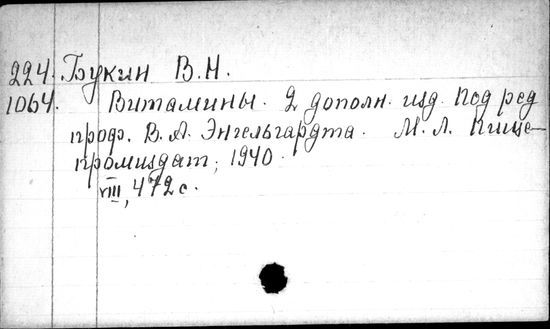 224. Букин В.Н.
1064. Витамины. 2 дополн. изд. Под ред
проф. В.А. Энгельгардта. М. Л. Пище-
промиздат, 1940.
VIII, 472 с.